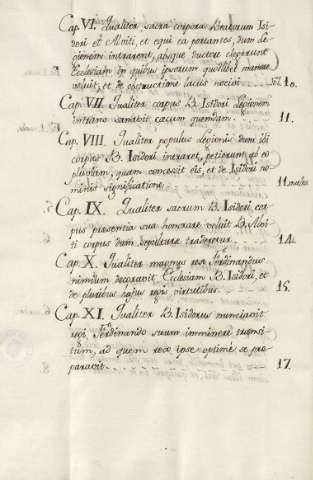 Cap. VI. Qualiter sacra corpora Beatorum Isi-
dori et Alviti, et equi ea portantes, dum Le-
gionem intrarent, absque ductore elegerunt
Ecclesiam in quibus ipsorum quolibet manere
voluit, et de obstructione lacus 10.
Cap. VII. Qualiter corpus B. Isidori Legionem
intrans sanavit cæcum quemdam. 11.
Cap. VIII. Qualiter populus Legionis dum ibi
corpus B. Isidori intraret, petierunt ab eo
pluviam, quam concessit eis, et de Isidori no-
minis significatione. 11.
Cap. IX. Qualiter sacrum B. Isidori cor-
pus presentia sua honorare voluit B. Alvi-
ti corpus dum sepulturæ traderetur. 14.
Cap. X. Qualiter magnus rex Ferdinandus
nimium decoravit Ecclesiam B. Isidori, et
de pluribus ejus regis virtutibus. 15.
Cap. XI. Qualiter B. Isidorus nunciavit
regi Ferdinando suum imminere transi-
tum, ad quem rex ipse optimè se pre-
paravit. 17.